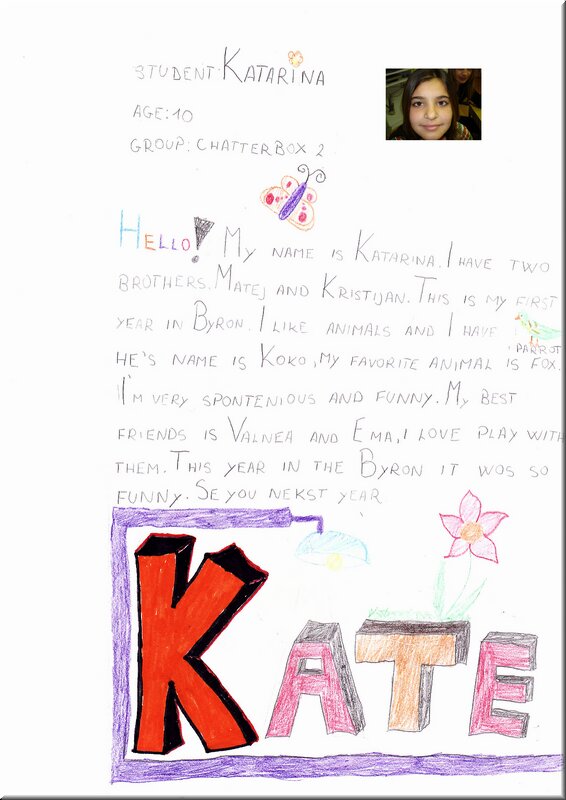 STUDENT: KATARINA
AGE: 10
GROUP: CHATTERBOX 2
HELLO! MY NAME IS KATARINA. I HAVE TWO
BROTHERS. MATEJ AND KRISTIJAN. THIS IS MY FIRST
YEAR IN BYRON. I LIKE ANIMALS AND I HAVE
PARROT
HE'S NAME IS KOKO, MY FAVORITE ANIMAL IS FOX.
I'M VERY SPONTENIOUS AND FUNNY. MY BEST
FRIENDS IS VALNEA AND EMA, I LOVE PLAY WITH
THEM. THIS YEAR IN THE BYRON IT WOS SO
FUNNY. SE YOU NEKST YEAR
KATE